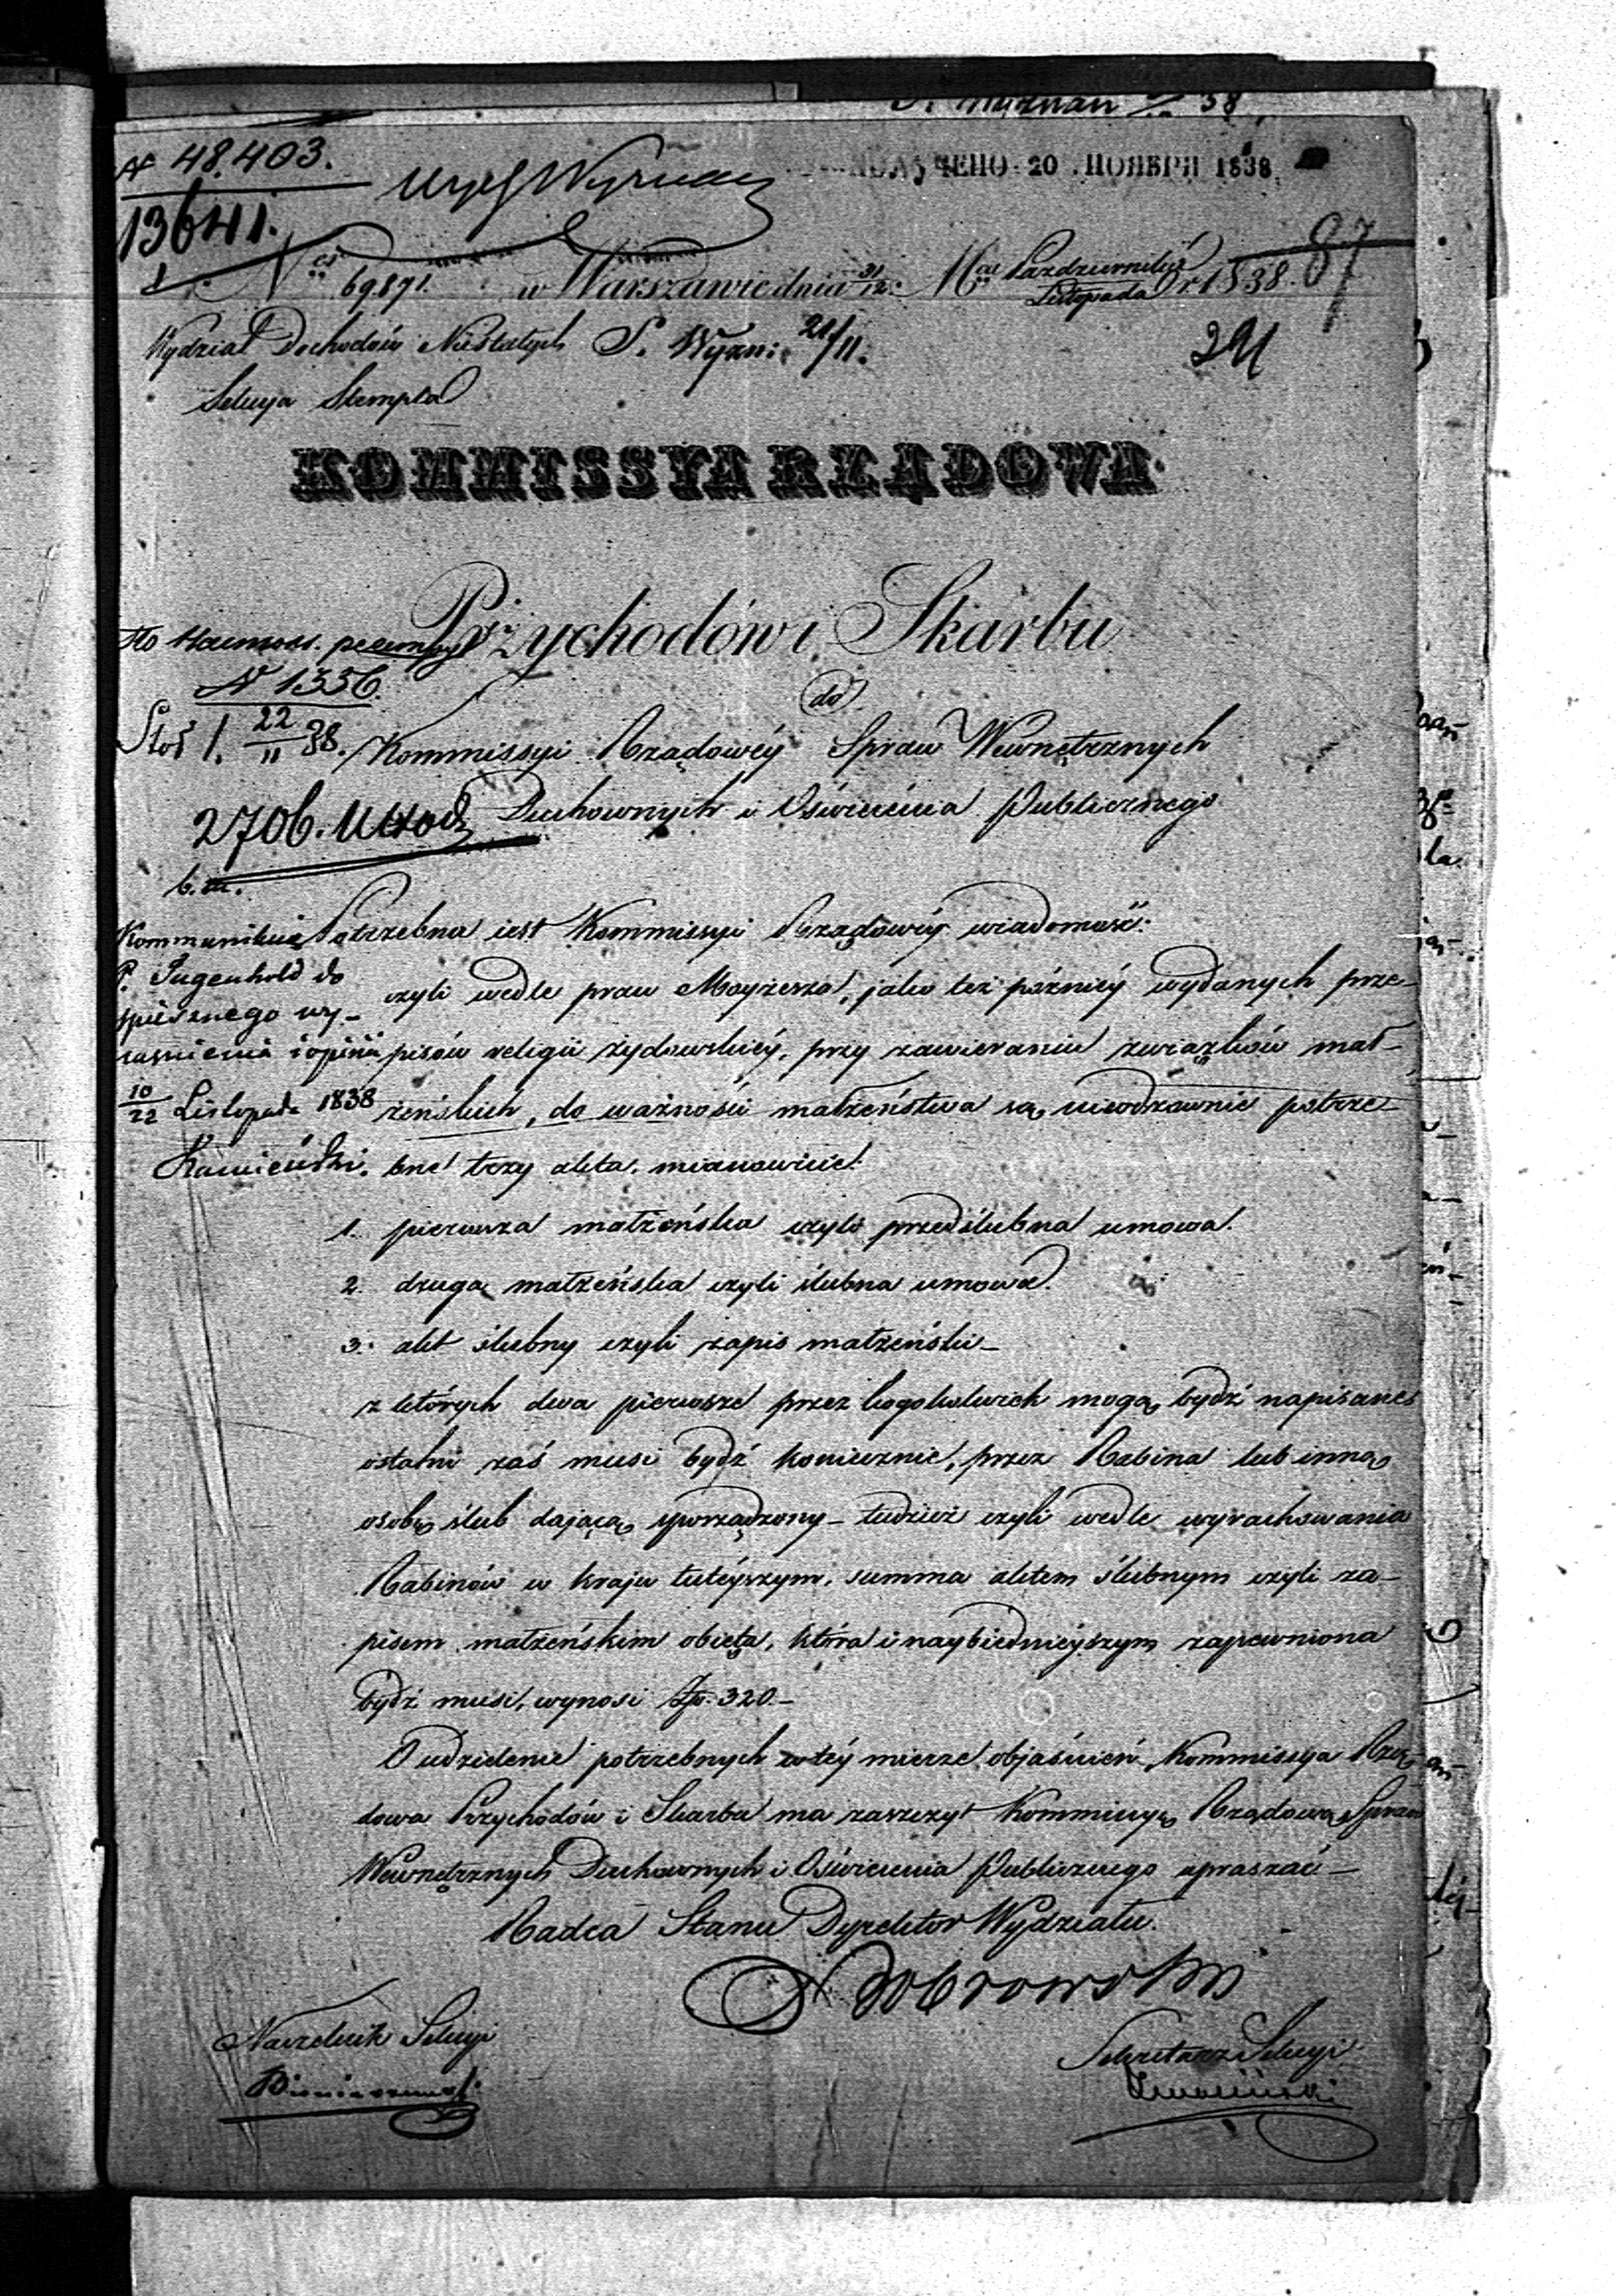 48.403.
ПОЛУЧЕНО 20 НОЯБРЯ 1838
13641.
87
N 69.871. w Warszawie dnia 31/12 Mca Października/Listopada r 1838.
Wydział Dochodów Niestałych S. Wyzn: 21/11.
291
Sekcya Stempla
KOMMISSYA RZĄDOWA
Przychodów i Skarbu
N 1336.
do
22/11 38.
Kommissyi Rządowéy Spraw Wewnętrznych
2706.
Duchownych i Oświecenia Publicznego
Kommunikuie
P. Tugenhold do
spiesznego wy-
iasnienia i opinii
10/22 Listopada 1838
Kamieński.
Potrzebna iest Kommissyi Rządowéy wiadomość:
czyli wedle praw Moyżesza, jako też późniéy wydanych prze-
pisów religii żydowskiéy, przy zawieraniu związków mał-
żeńskich, do ważności małżeństwa są nieodzownie potrze-
bne trzy akta. mianowicie:
1. pierwsza małżeńska czyli przedślubna umowa.
2. druga małżeńska czyli ślubna umowa.
3. akt ślubny czyli zapis małżeński-
z których dwa pierwsze przez kogokolwiek mogą bydź napisane
ostatni zaś musi bydź koniecznie, przez Rabina lub inną
osobę ślub dającą sporządzony- tudzież czyli wedle wyrachowania
Rabinów w kraju tutéyszym, summa aktem ślubnym czyli za-
pisem małżeńskim obięta, która i naybiednieyszym zapewniona
bydź musi, wynosi Złp. 320.-
O udzielenie potrzebnych w téy mierze objaśnień, Kommissya Rzą-
dowa Przychodów i Skarbu ma zaszczyt Kommissyą Rządową Spraw
Wewnętrznych Duchownych i Oświecenia Publicznego upraszać-
Radca Stanu Dyrektor Wydziału.
Dobrowolski
Naczelnik Sekcyi
Sekretarz Sekcyi